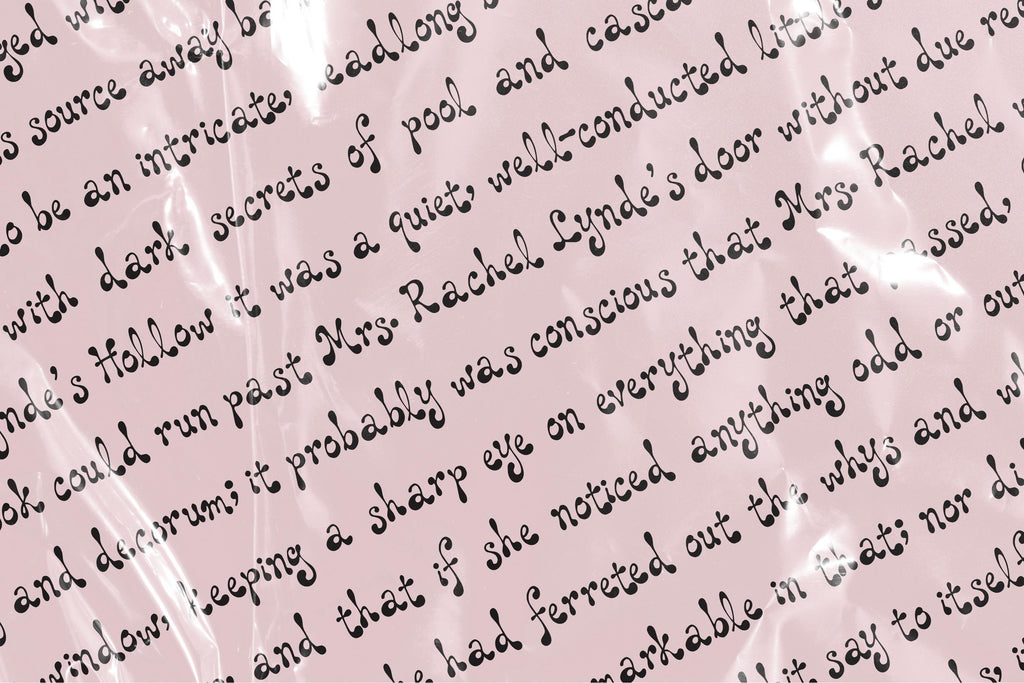 ged with
s source away ba
to be an intricate, headlong b
with dark secrets of pool and casca
ynde's Hollow it was a quiet, well-conducted little s
ook could run past Mrs. Rachel Lynde's door without due reg
and decorum; it probably was conscious that Mrs. Rachel w
window, keeping a sharp eye on everything that passed,
and that if she noticed anything odd or out
he had ferreted out the whys and wh
markable in that; nor di
it say to itself